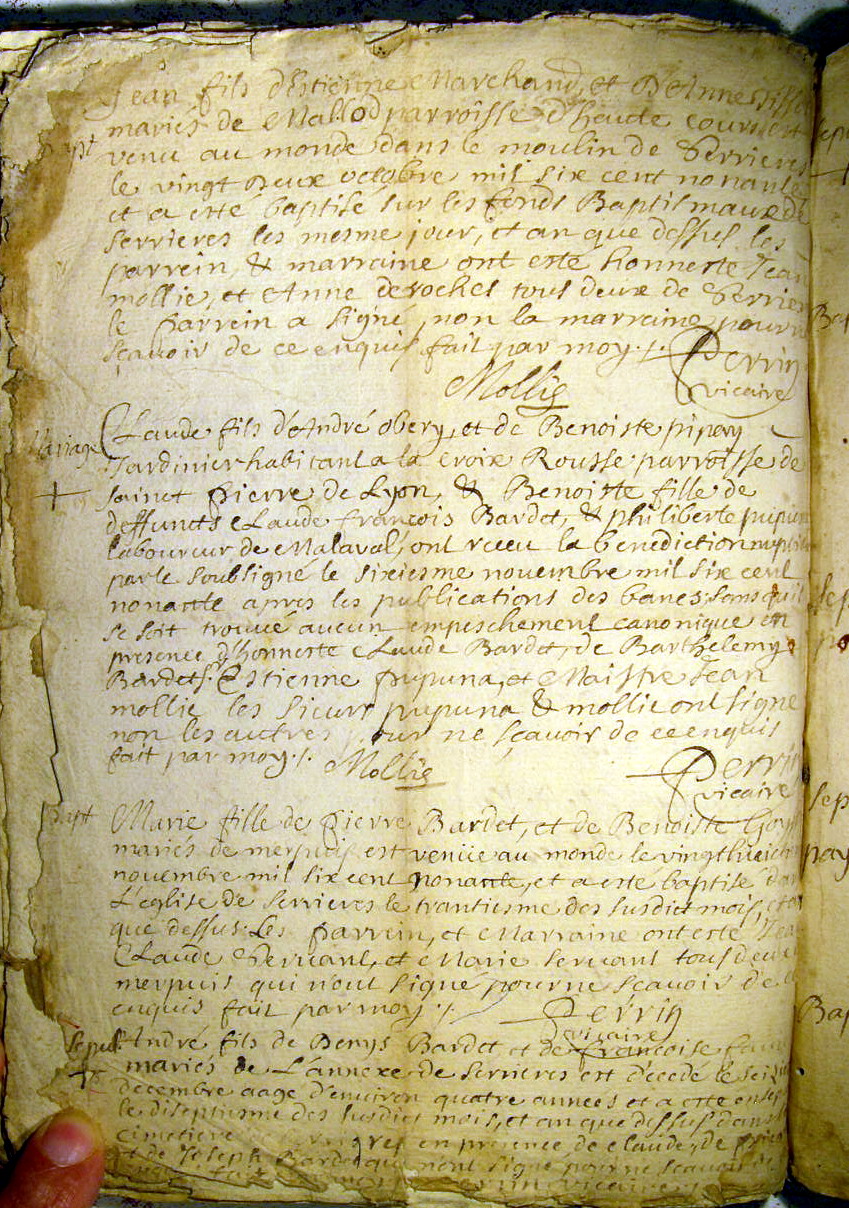 Jean fils d'Estienne Marchand, et D'Anne
mariés de Mallod parroisse d'haute court est
Bapt venu au monde dans le moulin de Serrieres
le vingt Deux octobre mil six cent nonante
et a esté baptisé sur les fonds Baptismaux de
serrieres les mesme jour, et an que dessus les
parrein, & marraine ont esté honneste Jean
mollie, et Anne deroches tous deux de Serrieres
le parrein a signé, non la marraine pour n
sçavoir de ce enquis fait par moy ./. Perrin
Mollie vicaire
Mariage Claude fils d'André obery, et de Benoiste pipay
Jardinier habitant a la croix Rousse parroisse de
sainct Pierre de Lyon, & Benoiste fille de
deffuncts Claude françois Bardet, & philiberte pupuna
laboureur de Malaval, ont receu la benediction nuptiale
par le soubsigné le sixiesme novembre mil six cent
nonante apres les publications des bancs, sans qu'il
se soit trouué aucun empeschement canonique en
presence d'honneste Claude Bardet, de Barthelemy
Bardet, Estienne pupuna, et Maistre Jean
mollie les sieurs pupuna & mollie ont signé
non les autres pour ne sçavoir de ce enquis
fait par moy ./. Mollie Perrin
vicaire
Bapt Marie fille de Pierre Bardet, et de Benoiste
mariés de merpuis est venüe au monde le vingt hueict
novembre mil six cent nonante, et a esté baptisé dans
L'eglise de serrieres le trantiesme des susdict mois, et an
que dessus. Les Parrein, et Marraine ont esté Jean
Claude Servant, et Marie servant tous deux
merpuis qui n'ont signé pour ne scavoir de ce
enquis fait par moy ./. Perrin
vicaire
Sepul André fils de Denys Bardet et de françoise
mariés de L'annexe de serrieres est décedé le
decembre aagé d'environ quatre années et a esté ensep
le diseptiesme des susdict mois, et an que dessus dans
cimetiere en presence de claude, de
et de Joseph Bardet qui n'ont signé pour ne scavoir
vicaire